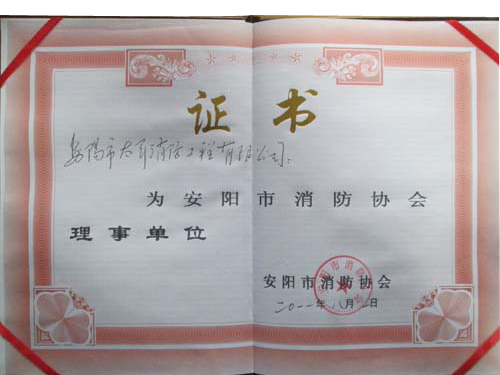 证书
安阳市太平消防工程有限公司:
为安阳市消防协会
理事单位
安阳市消防协会
二〇一一年八月 日